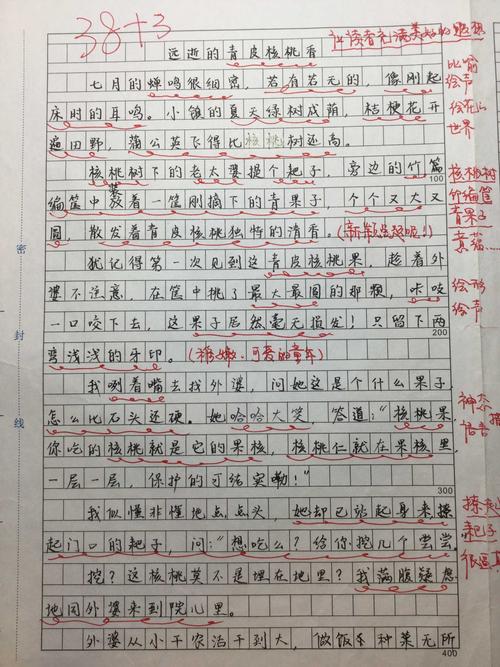 38+3
远逝的青皮核桃香
七月的蝉鸣很细密，若有若无的，像刚起
床时的耳鸣。小镇的夏天绿树成荫，桔梗花开
遍田野，蒲公英飞得比核桃树还高。
核桃树下的老太婆摸个耙子，旁边的竹篇
编筐中装着一筐刚摘下的青果子，个个又大又
圆，散发着青皮核桃独特的清香。
100
犹记得第一次见到这青皮核桃果，趁着外
婆不注意，在筐中挑了最大最圆的那颗，咔吱
一口咬下去，这果子居然毫无损发！只留下两
200
弯浅浅的牙印。
我咧着嘴去找外婆，问她这是个什么果子，
怎么比石头还硬。她哈哈大笑 答道："核桃果，
你吃的核桃就是它的果核，核桃仁就在果核里，
一层一层，保护的可结实嘞！"
300
我似懂非懂地点点头，她却已站起身来操
起门口的耙子，问："想吃么？给你挖几个尝尝。
挖？这核桃莫不是埋在地里？我满腹疑惑
地同外婆来到院儿里。
外婆从小干农活干到大，做饭种菜无所
400
比喻
绘声
世界
核桃树
竹编筐
青果子
绘形
绘声
神态
耙子
密
封
线